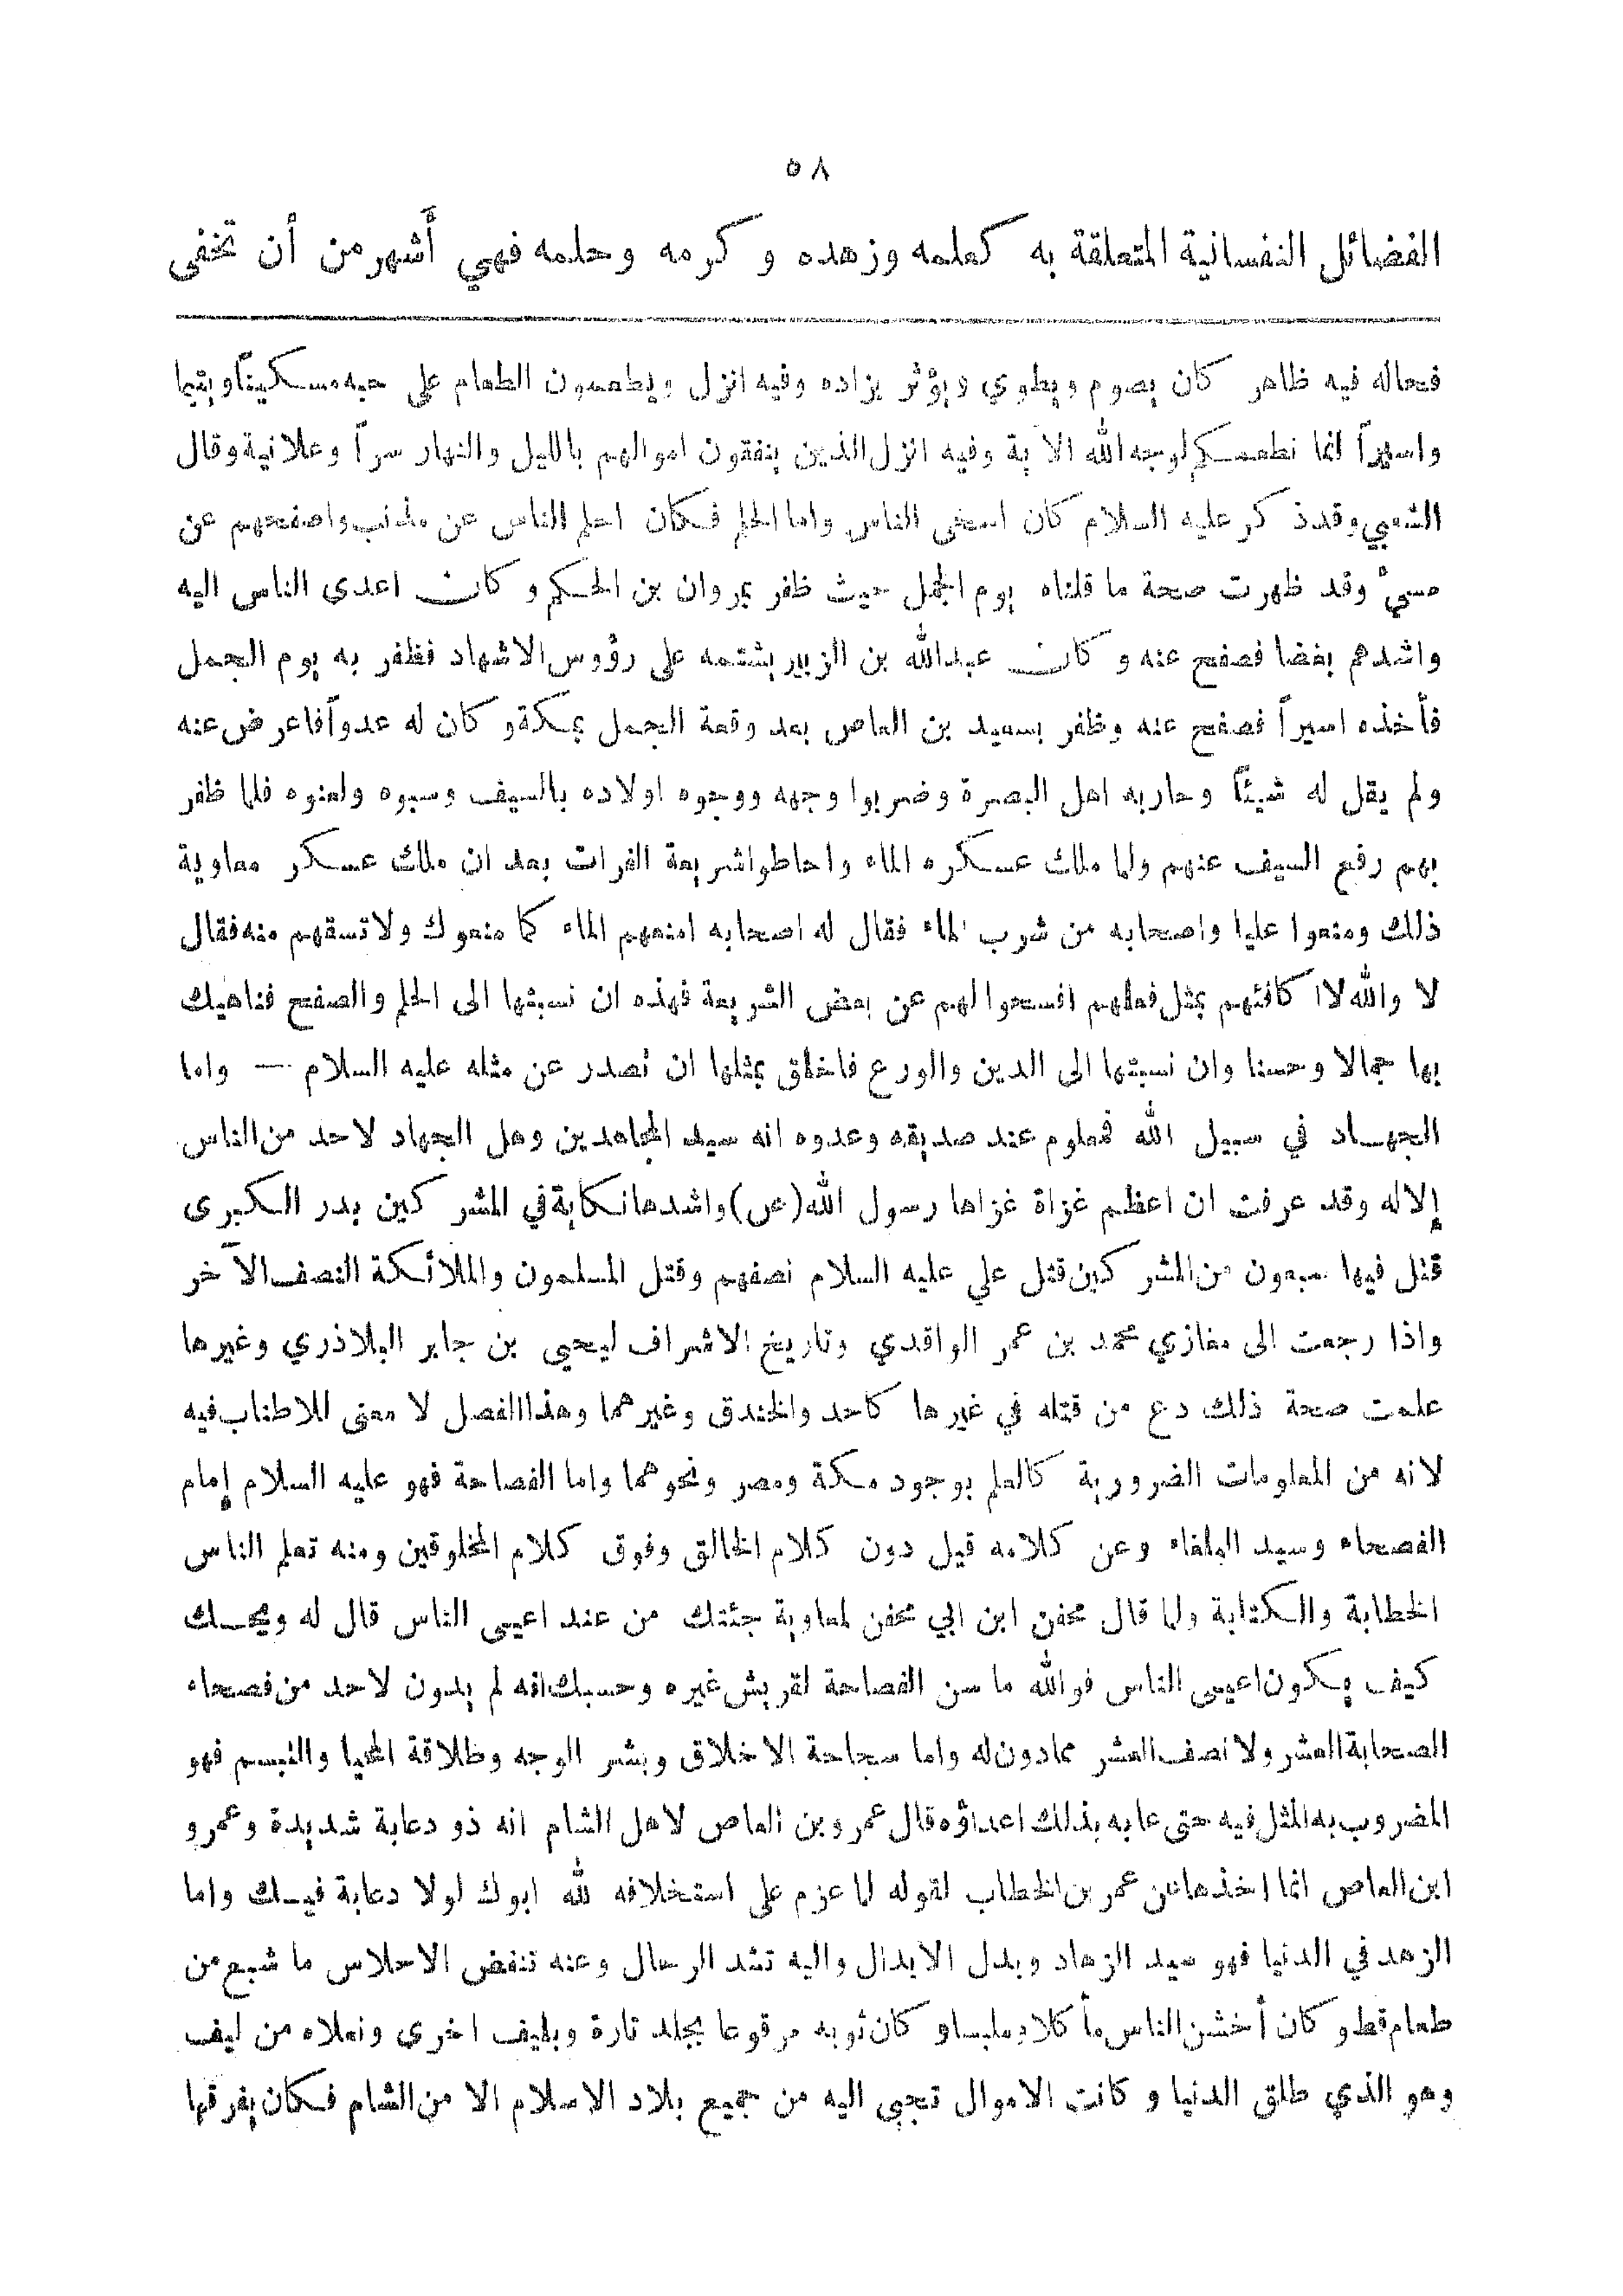 ٥٨
الفضائل النفسانية المتعلقة به كعلمه وزهده و كرمه وحلمه فهي أشهر من أن تخفى
فحاله فيه ظاهر كان يصوم ويطوي ويؤثر بزاده وفيه انزل ويطعمون الطعام على حبه مسكيناً ويتيما
واسيراً انما نطعمكم لوجه الله الاية وفيه انزل الذين ينفقون اموالهم بالليل والنهار سراً وعلانية وقال
الشعبي وقد ذكر عليه السلام كان اسخى الناس واما الحلم فكان احلم الناس عن مذنب واصفحهم عن
مسيء وقد ظهرت صحة ما قلناه يوم الجمل حيث ظفر بمروان بن الحكم وكان اعدى الناس اليه
واشدهم بغضا فصفح عنه وكان عبدالله بن الزبير يشتمه على رؤوس الاشهاد فظفر به يوم الجمل
فأخذه اسيراً فصفح عنه وظفر بسعيد بن العاص بعد وقعة الجمل بمكة وكان له عدواً فاعرض عنه
ولم يقل له شيئاً وحاربه اهل البصرة وضربوا وجهه ووجوه اولاده بالسيف وسبوه ولعنوه فلما ظفر
بهم رفع السيف عنهم ولما ملك عسكره الماء واحاطوا شريعة الفرات بعد ان ملك عسكر معاوية
ذلك ومنعوا عليا واصحابه من شرب الماء فقال له اصحابه امنعهم الماء كما منعوك ولا تسقهم منه فقال
لا والله لا اكافئهم بمثل فعلهم افسحوا لهم عن بعض الشريعة فهذه ان نسبتها الى الحلم والصفح فناهيك
بها جمالا وحسنا وان نسبتها الى الدين والورع فاخلق بمثلها ان تصدر عن مثله عليه السلام — واما
الجهاد في سبيل الله فمعلوم عند صديقه وعدوه انه سيد المجاهدين وهل الجهاد لاحد من الناس
إلا له وقد عرفت ان اعظم غزاة غزاها رسول الله (ص) واشدها نكاية في المشركين بدر الكبرى
قتل فيها سبعون من المشركين قتل علي عليه السلام نصفهم وقتل المسلمون والملائكة النصف الآخر
واذا رجعت الى مغازي محمد بن عمر الواقدي وتاريخ الاشراف ليحيى بن جابر البلاذري وغيرها
علمت صحة ذلك دع من قتله في غيرها كاحد والخندق وغيرهما وهذا الفصل لا معنى للاطناب فيه
لانه من المعلومات الضرورية كالعلم بوجود مكة ومصر ونحوهما واما الفصاحة فهو عليه السلام إمام
الفصحاء وسيد البلغاء وعن كلامه قيل دون كلام الخالق وفوق كلام المخلوقين ومنه تعلم الناس
الخطابة والكتابة ولما قال محفن ابن ابي محفن لمعاوية جئتك من عند اعيى الناس قال له ويحك
كيف يكون اعيى الناس فوالله ما سن الفصاحة لقريش غيره وحسبك انه لم يدون لاحد من فصحاء
الصحابة العشر ولا نصف العشر مما دون له واما سجاحة الاخلاق وبشر الوجه وطلاقة المحيا والتبسم فهو
المضروب به المثل فيه حتى عابه بذلك اعداؤه قال عمرو بن العاص لاهل الشام انه ذو دعابة شديدة وعمرو
ابن العاص انما اخذها عن عمر بن الخطاب لقوله لما عزم على استخلافه لله ابوك لولا دعابة فيك واما
الزهد في الدنيا فهو سيد الزهاد وبدل الابدال واليه تشد الرحال وعنه تنفض الاحلاس ما شبع من
طعام قط وكان أخشن الناس مأكلا وملبسا وكان ثوبه مرقوعا بجلد تارة وبليف اخرى ونعلاه من ليف
وهو الذي طلق الدنيا و كانت الاموال تجبى اليه من جميع بلاد الاسلام الا من الشام فكان يفرقها